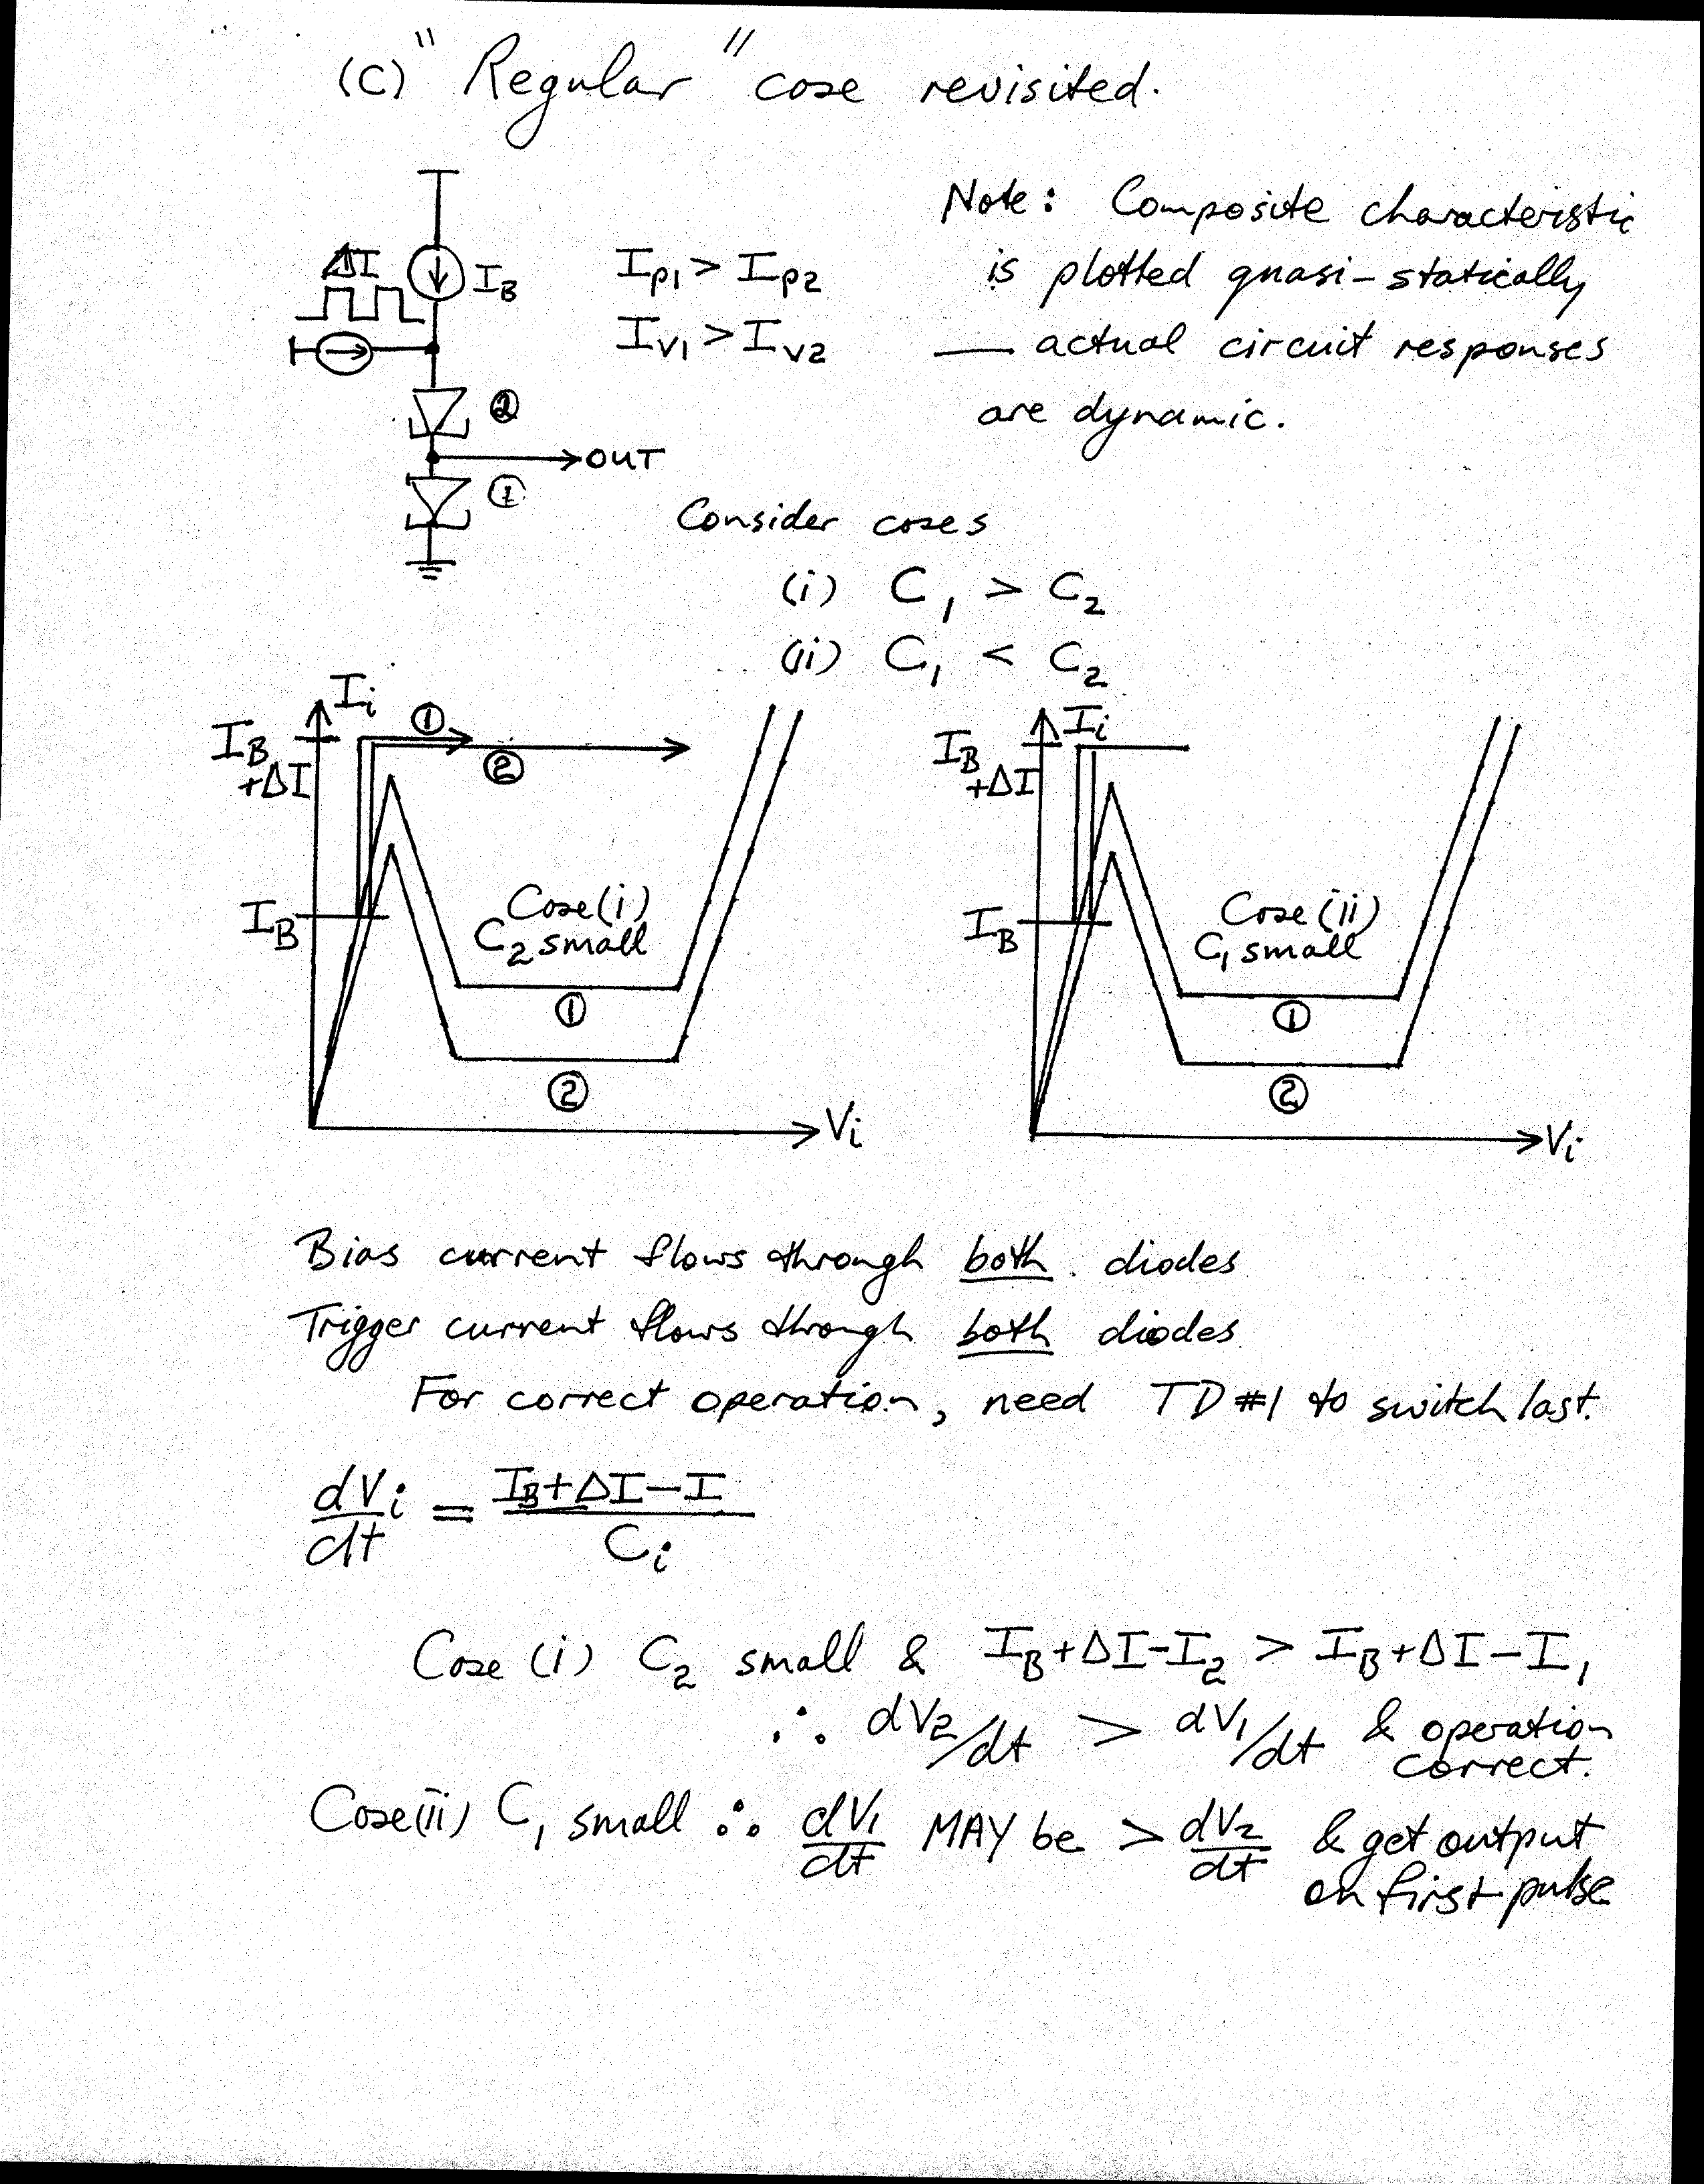 (C) "Regular" case revisited.
Note: Composite characteristic
is plotted quasi-statically
— actual circuit responses
are dynamic.
ΔI
I_B
I_P1 > I_P2
I_V1 > I_V2
②
→ OUT
①
Consider cases
(i) C₁ > C₂
(ii) C₁ < C₂
I_i
①
I_B
+ΔI
②
I_B
Case (i)
C₂ small
①
②
V_i
I_i
I_B
+ΔI
I_B
Case (ii)
C₁ small
①
②
V_i
Bias current flows through both diodes
Trigger current flows through both diodes
For correct operation, need TD #1 to switch last.
dV_i/dt = (I_B+ΔI−I)/C_i
Case (i) C₂ small & I_B+ΔI−I₂ > I_B+ΔI−I₁
∴ dV₂/dt > dV₁/dt & operation
correct.
Case (ii) C₁ small ∴ dV₁/dt MAY be > dV₂/dt & get output
on first pulse